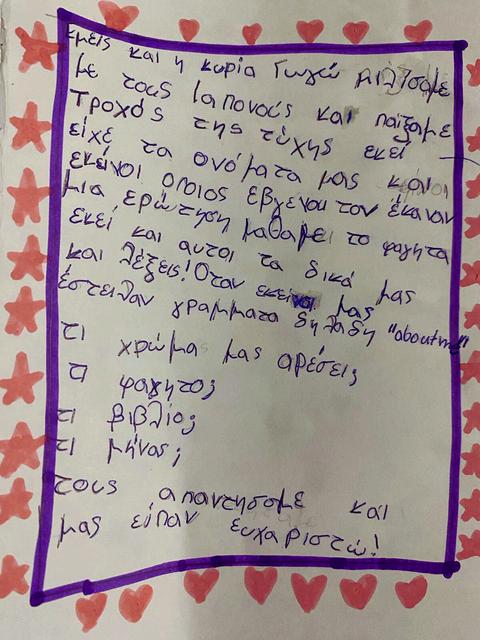 εμεις και η κυρία Γωγώ μιλισαμε
με τους Ιαπονούς και παίξαμε
τροχός της τύχης εκεί
είχε τα ονόματα μας και
εκείνοι οποιος εβγενου τον έκαναν
μια ερώτηση μαθαμε το φαγητα
εκεί και αυτοι τα δικά μας
και λέξεις! Όταν εκείνοι μας
έστειλαν γραμματα δηλαδη "about me"
τι χρώμα μας αρέσει;
τι φαγητο;
τι βιβλίο;
τι μήνας;
τους απαντησαμε και
μας είπαν ευχαριστώ!